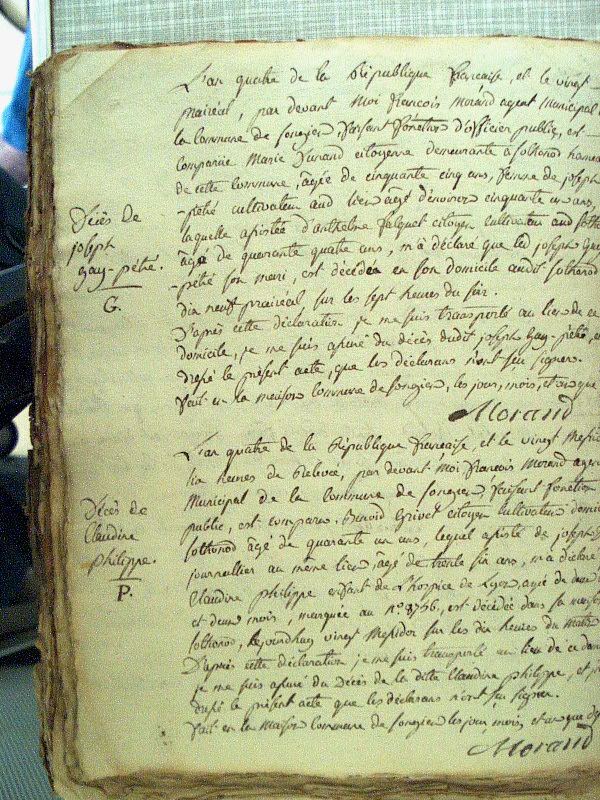 L'an quatre de la République française, et le vingt
prairéal, par devant Moi françois Morand agent Municipal
la Commune de songieu, faisant fonction d'officier public, est
Comparüe Marie Durand citoyenne demeurante à sothonod hamea
de cette Commune, âgée de cinquante cinq ans, femme de joseph
-pétré cultivateur aud lieu âgé d'environ cinquante un ans,
laquelle assistée d'anthelme falquet citoyen cultivateur aud sotho
âgé de quarante quatre ans, m'a déclaré que led joseph Guy
-pétré son mari, est décédée en son domicile audit sothonod
dix neuf prairéal sur les sept heures du soir.
D'après cette déclaration je me suis transporté au lieu de ce
domicile, je me suis assuré du décès dudit joseph Guy-pétré, et
dressé le présent acte, que les déclarans n'ont seu signer.
fait en la maison Commune de songieu, les jour, mois, et an que
Morand
Décès de
joseph
guy-pétré.
G.
L'an quatre de la République française, et le vingt Messid
six heures de Relevée, par devant Moi François Morand agent
Municipal de la Commune de songieu, faisant fonction
public, est comparu Benoid Grivet citoyen cultivateur domi
sothonod âgé de quarante un ans, lequel assisté de joseph
journallier au même lieu, âgé de trente six ans, m'a déclaré
Claudine philippe enfant de l'hospice de Lyon, agée de
et deux mois, marquée au N° 8756, est décédée dans sa maison
sothonod, vingt Messidor sur les dix heures du matin
D'après cette déclaration je me suis transporté au lieu de ce dom
je me suis assuré du Décès de la ditte Claudine philippe, et j
dressé le présent acte que les déclarans n'ont seu signer.
fait en la Maison Commune de songieu les jour mois, et an que d
Morand
Décès de
Claudine
philippe.
P.